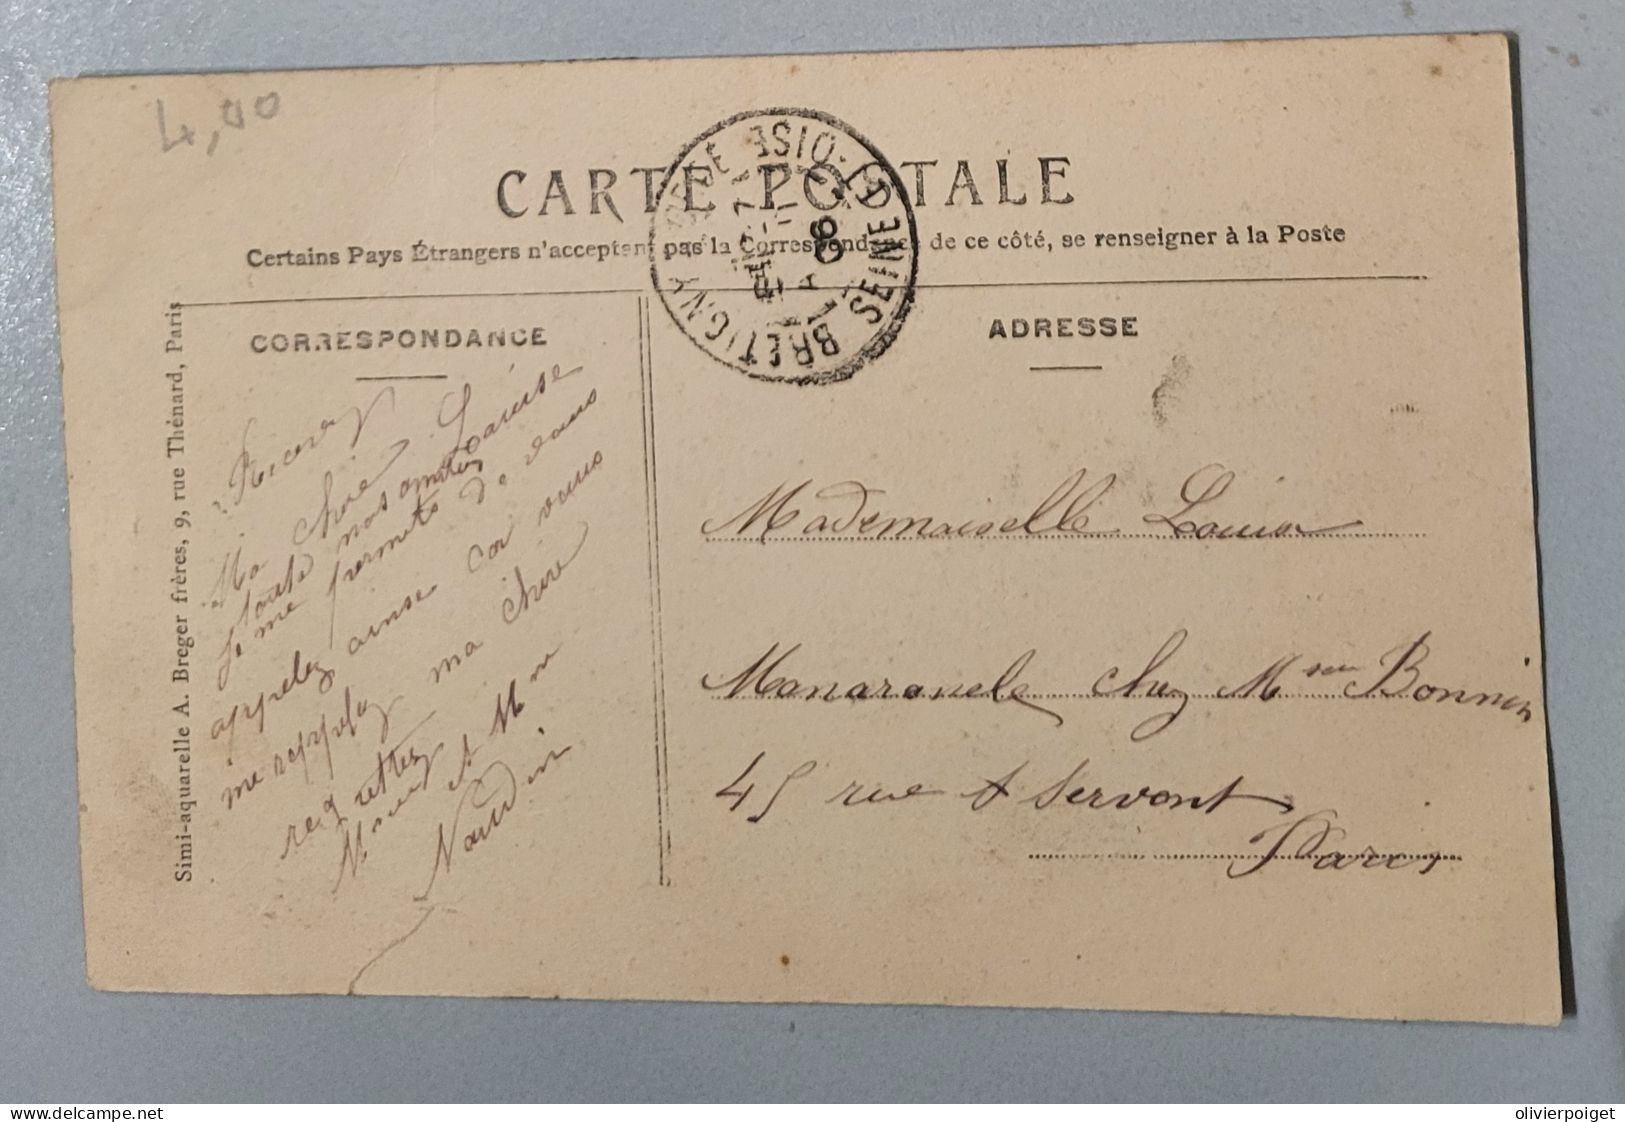 4,00
CARTE POSTALE
Certains Pays Étrangers n'acceptent pas la Correspondance de ce côté, se renseigner à la Poste
BRETIGNY SEINE-ET-OISE
06
CORRESPONDANCE
ADRESSE
Simi-aquarelle A. Breger frères, 9, rue Thénard, Paris
Ma chère Louise
toute nos amitiés
Je me permets de vous
appelez ainsi car vous
me rappelez ma chère
regrettez
Mr et Mme
Naudin
Mademoiselle Louise
chez Bonnin
45 rue St Servont
Paris
olivierpoiget